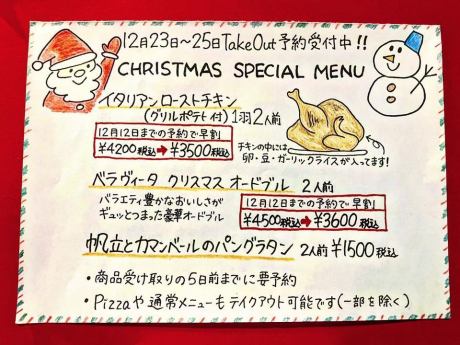 12月23日～25日TakeOut予約受付中!!
CHRISTMAS SPECIAL MENU
イタリアンローストチキン
(グリルポテト付) 1羽2人前
12月12日までの予約で早割
¥4200税込→¥3500税込
チキンの中には
卵・豆・ガーリックライスが入ってます!
ベラヴィータ クリスマス オードブル 2人前
バラエティ豊かなおいしさが
ギュッとつまった豪華オードブル
12月12日までの予約で早割
¥4500税込→¥3600税込
帆立とカマンベールのパングラタン 2人前 ¥1500税込
・商品受け取りの5日前までに要予約
・Pizzaや通常メニューもテイクアウト可能です(一部を除く)